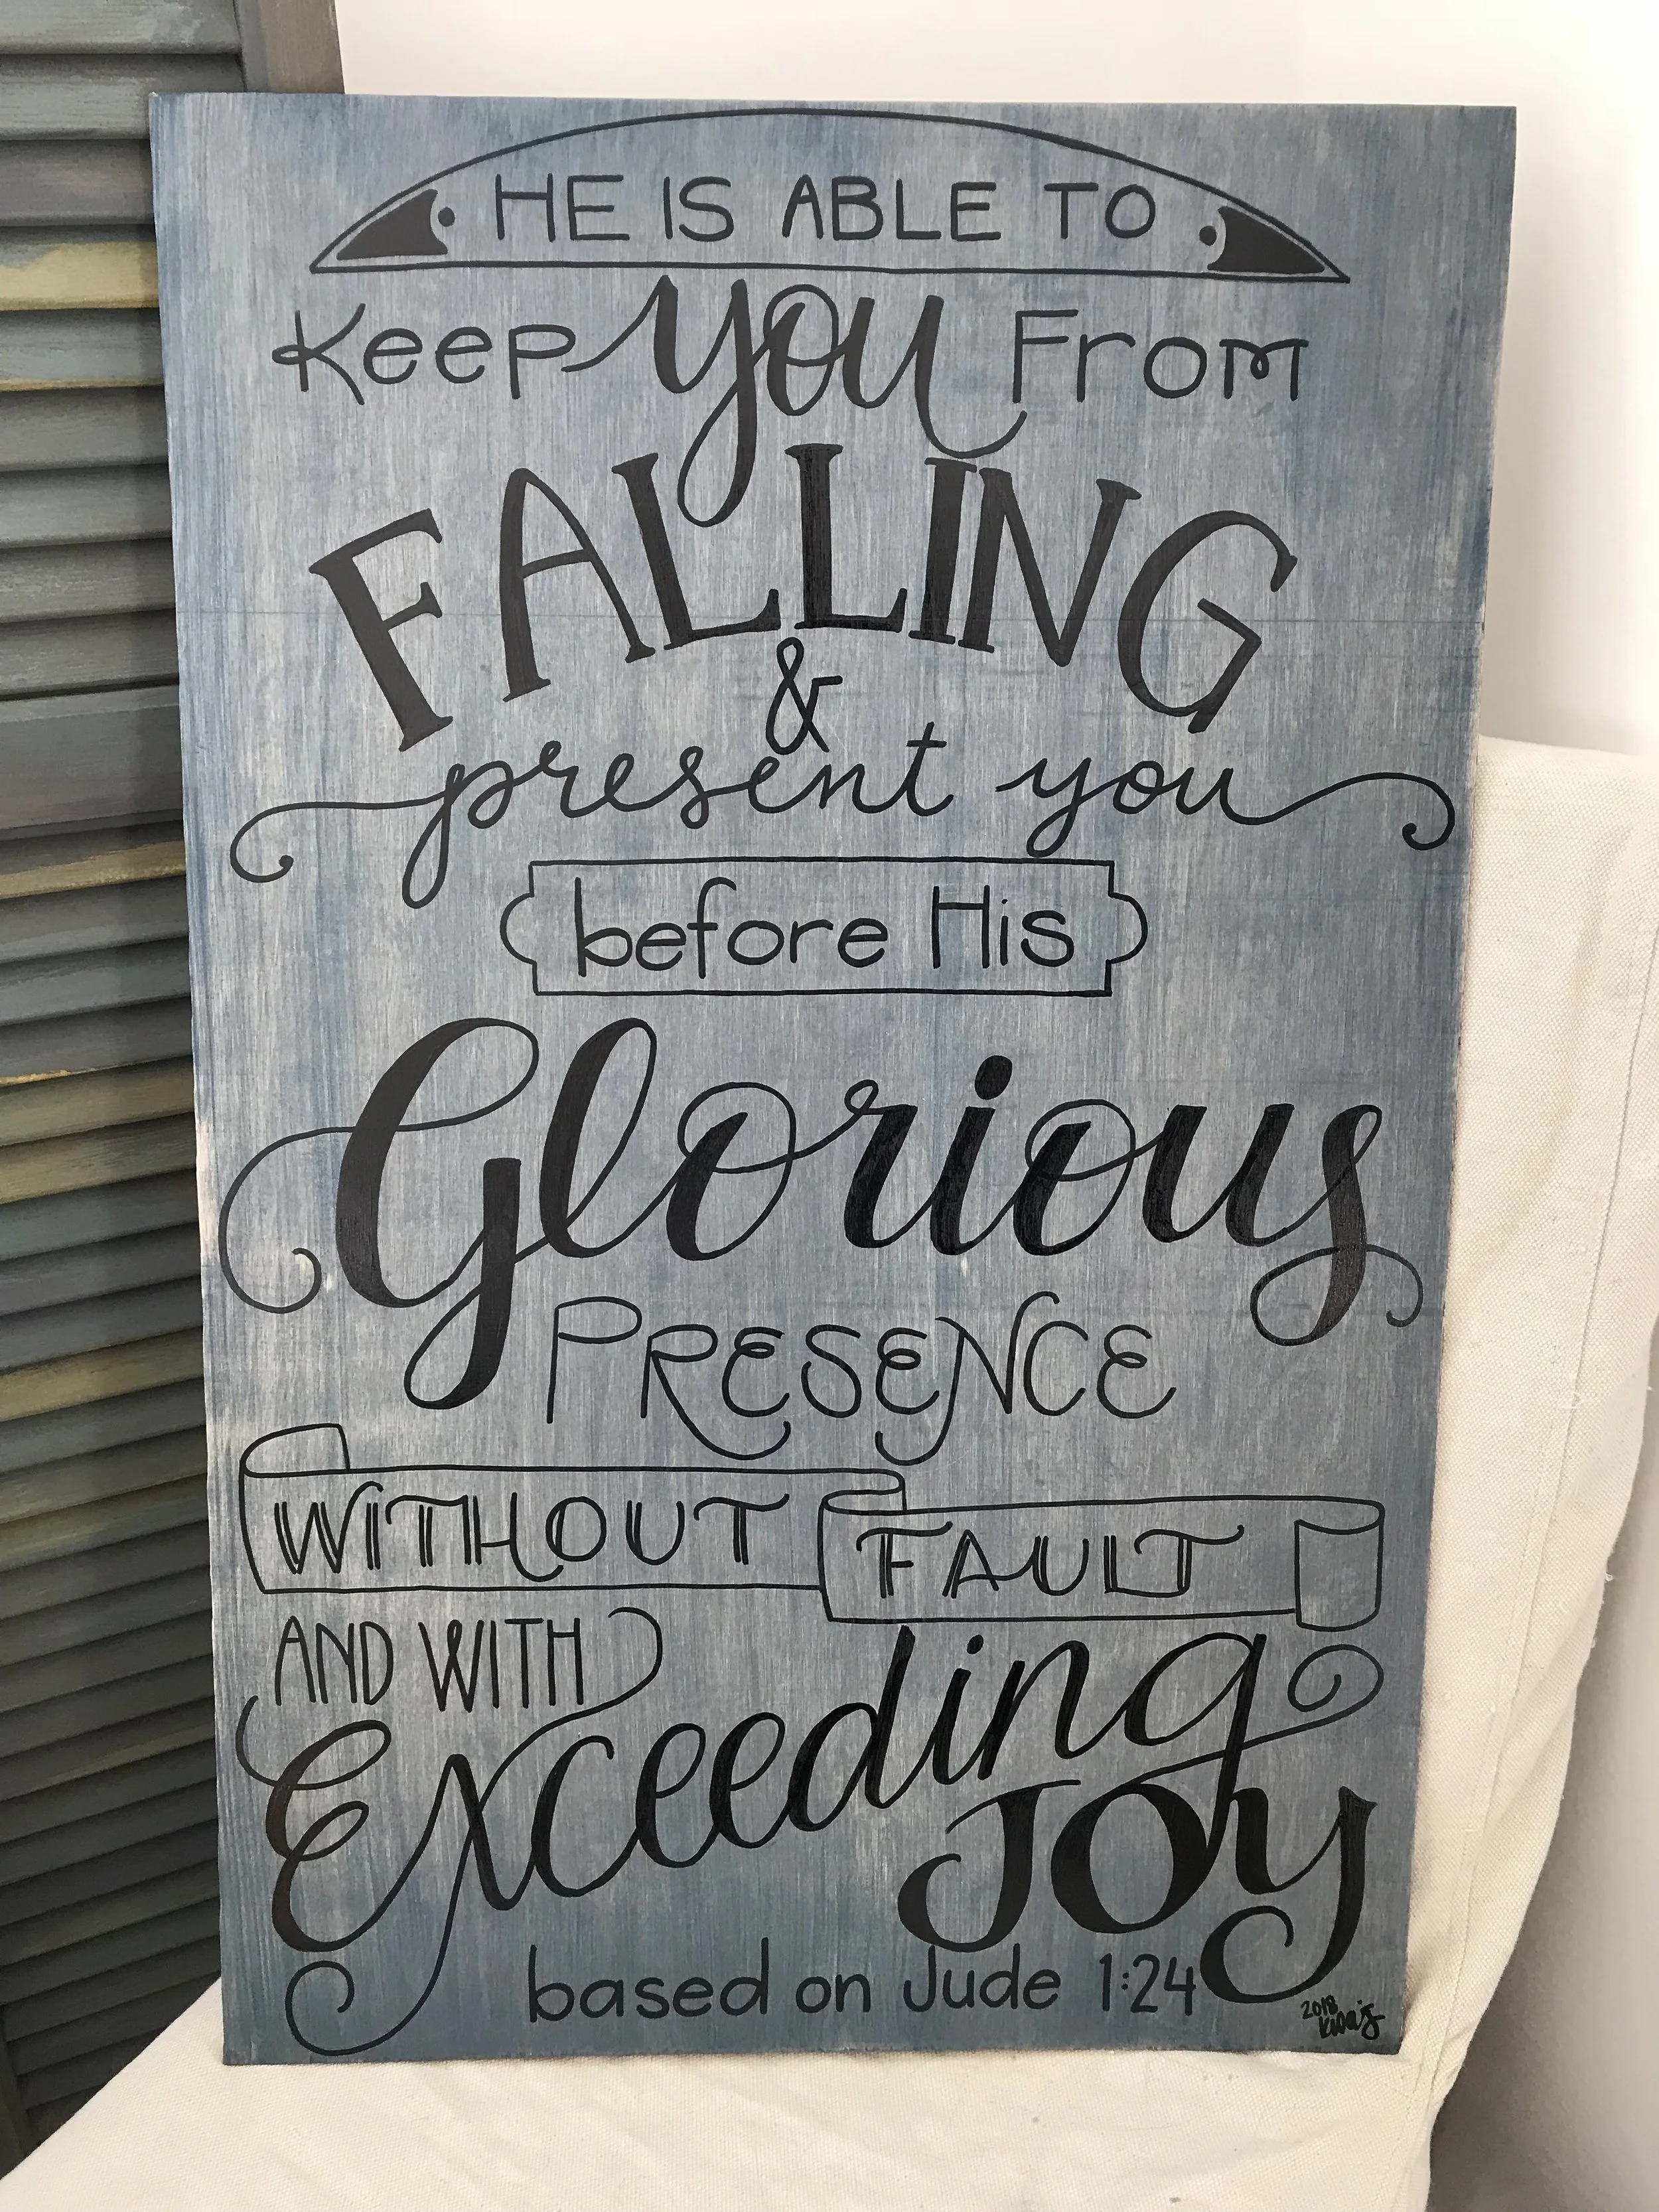 HE IS ABLE TO
Keep you From
FALLING
&
present you
before His
Glorious
PRESENCE
WITHOUT FAULT
AND WITH
Exceeding
JOY
based on Jude 1:24
2018